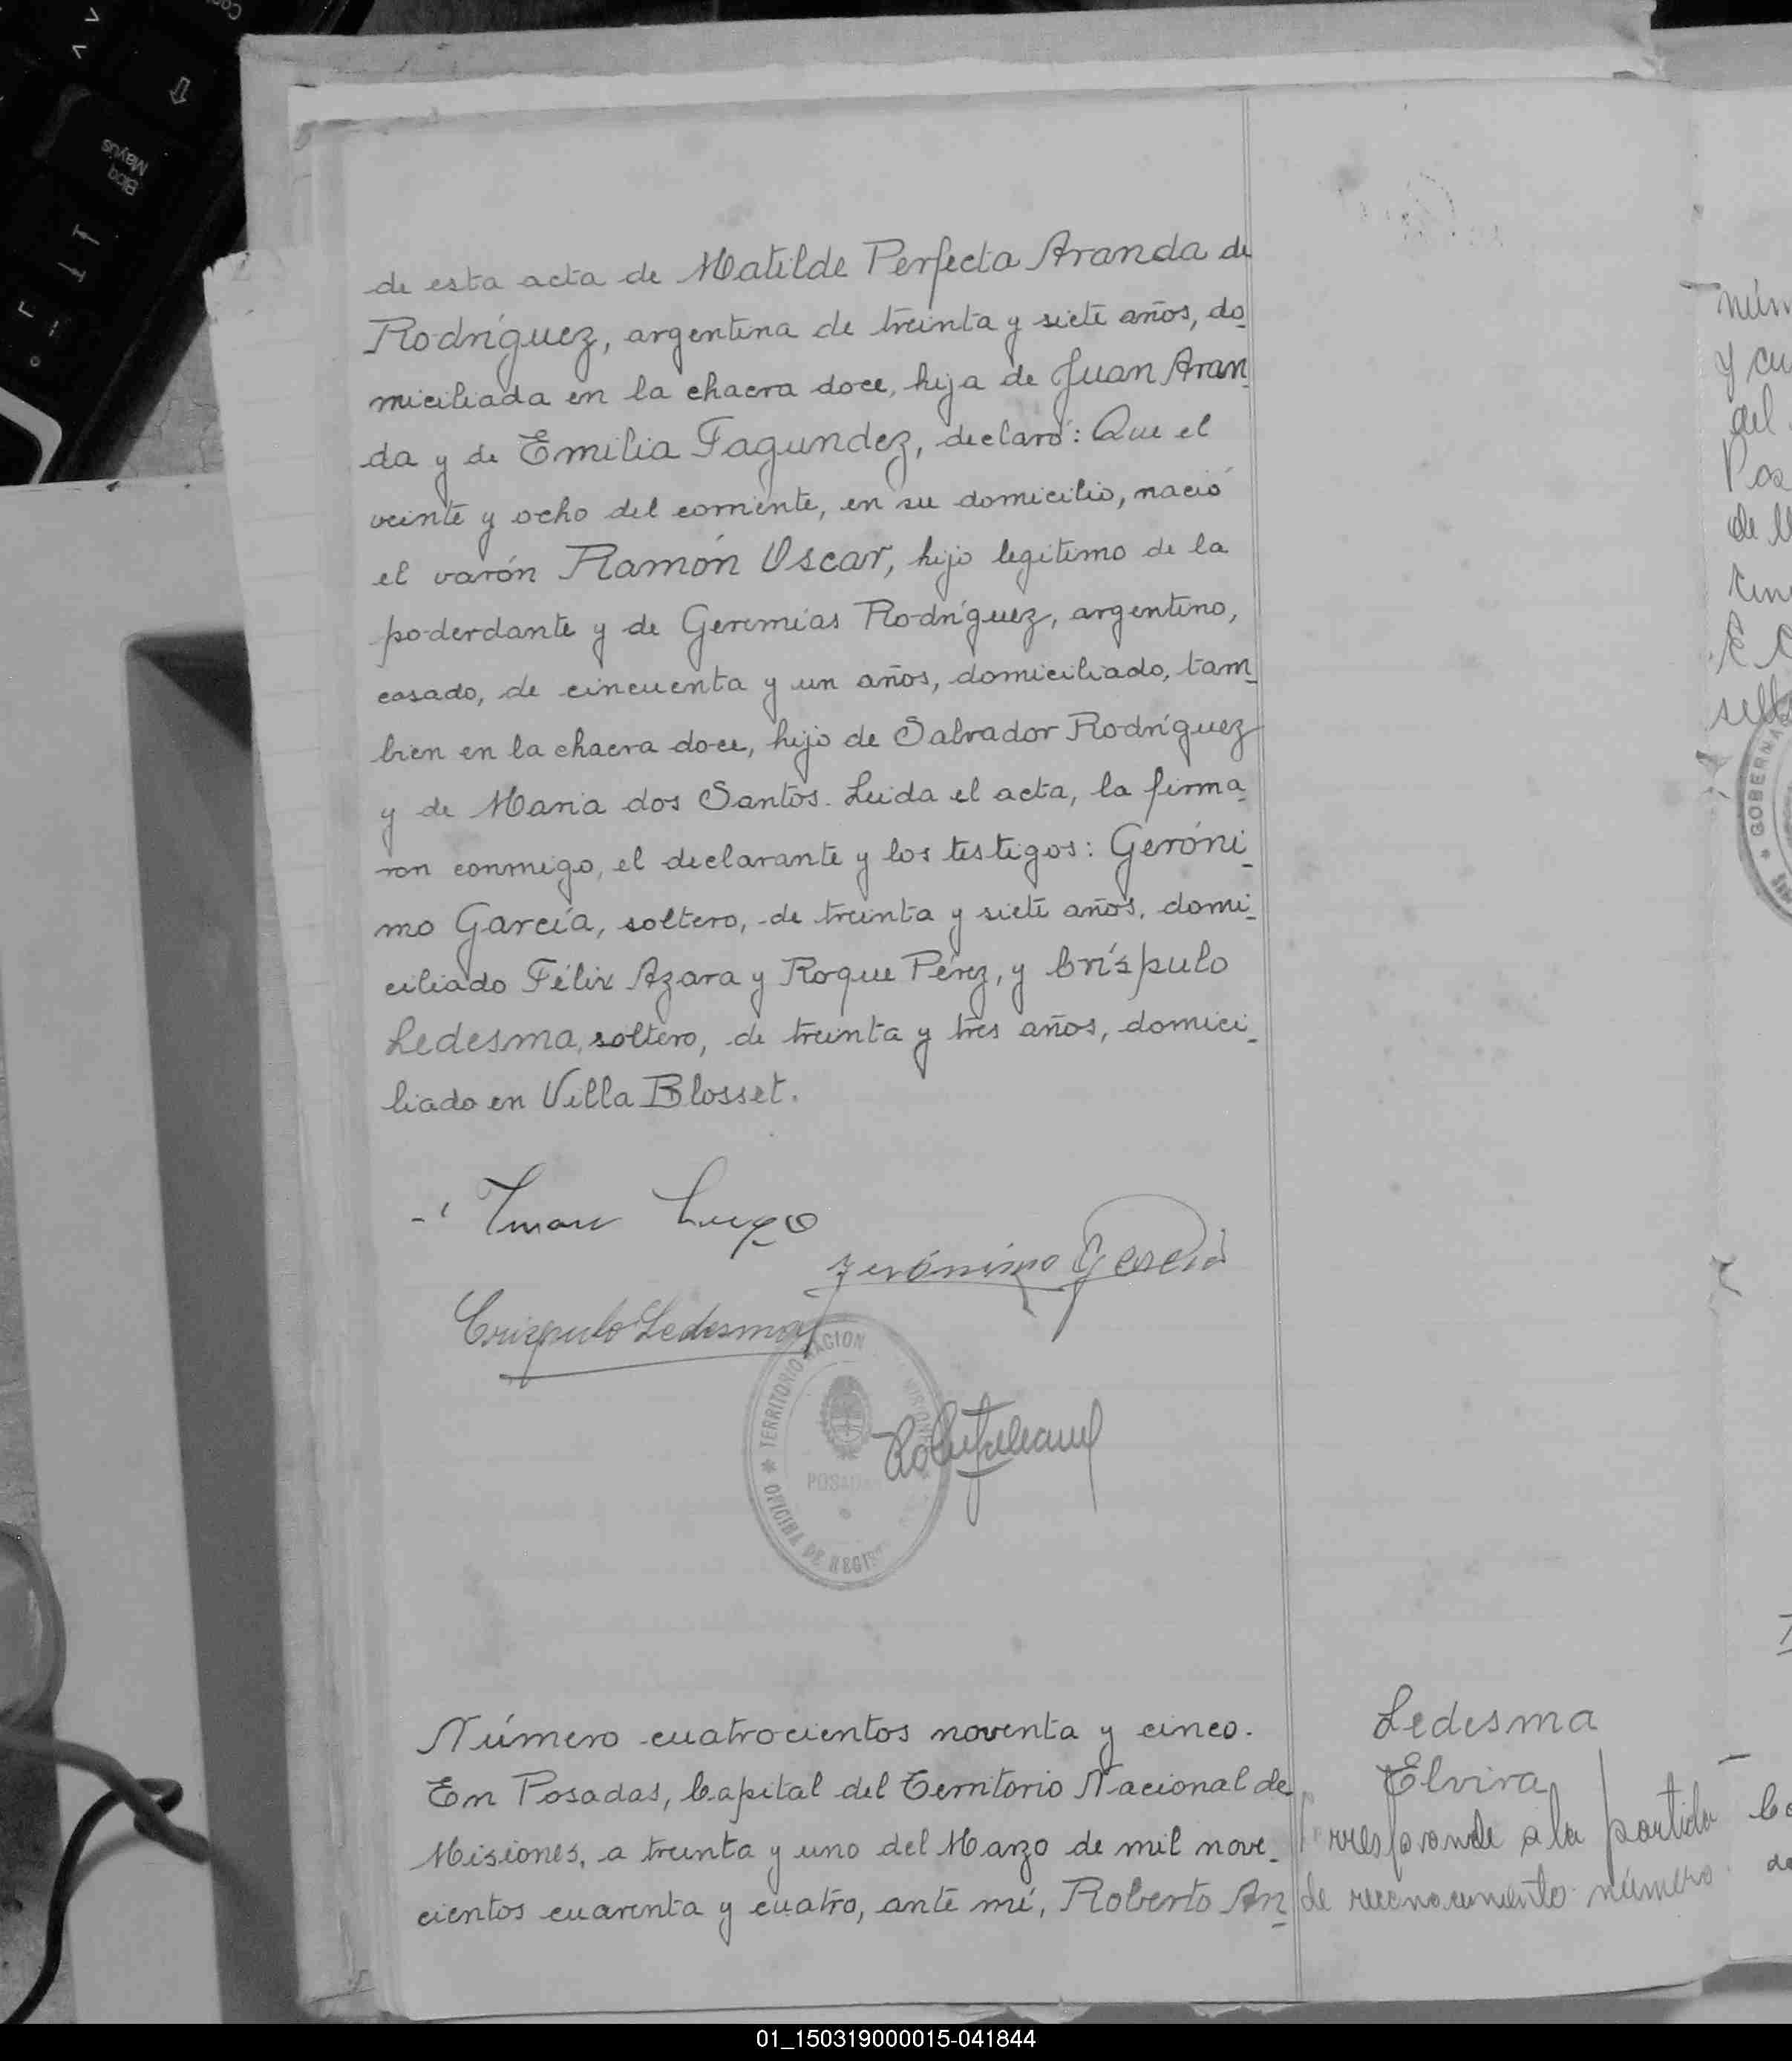 de esta acta de Matilde Perfecta Aranda de
Rodríguez, argentina de treinta y siete años, do_
miciliada en la chacra doce, hija de Juan Aran_
da y de Emilia Fagundez, declaró: Que el
veinte y ocho del corriente, en su domicilio, nació
el varón Ramón Oscar, hijo legitimo de la
poderdante y de Geremías Rodríguez, argentino,
casado, de cincuenta y un años, domiciliado, tam_
bien en la chacra doce, hijo de Salvador Rodríguez
y de Maria dos Santos. Leida el acta, la firma_
ron conmigo, el declarante y los testigos: Geróni_
mo García, soltero, de treinta y siete años, domi_
ciliado Félix Azara y Roque Pérez, y Críspulo
Ledesma, soltero, de treinta y tres años, domici_
liado en Villa Blosset.
Juan Lugo
Jerónimo García
Crispulo Ledesma
TERRITORIO NACION MISIONES
POSADAS
OFICINA DE REGIS
Número cuatrocientos noventa y cinco.
En Posadas, Capital del Territorio Nacional de
Misiones, a treinta y uno del Marzo de mil nove_
cientos cuarenta y cuatro, ante mí, Roberto An_
Ledesma
Elvira
rresponde a la partida
de reconocimiento número
núm
y cu
del
Pos
de
GOBERNA
Bloq
Mayús
01_150319000015-041844